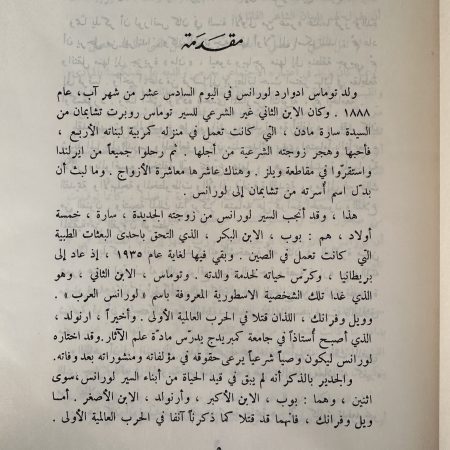 مقدمة
ولد توماس ادوارد لورانس في اليوم السادس عشر من شهر آب، عام
١٨٨٨ . وكان الابن الثاني غير الشرعي للسير توماس روبرت تشابمان من
السيدة سارة مادن ، التي كانت تعمل في منزله كمربية لبناته الأربع ،
فأحبها وهجر زوجته الشرعية من أجلها . ثم رحلوا جميعاً من ايرلندا
واستقروا في مقاطعة ويلز . وهناك عاشرها معاشرة الأزواج . وما لبث أن
بدّل اسم أسرته من تشابمان إلى لورانس .
هذا ، وقد أنجب السير لورانس من زوجته الجديدة ، سارة ، خمسة
أولاد ، هم : بوب ، الابن البكر ، الذي التحق باحدى البعثات الطبية
التي كانت تعمل في الصين . وبقي فيها لغاية عام ١٩٣٥ ، إذ عاد إلى
بريطانيا ، وكرّس حياته لخدمة والدته . وتوماس ، الابن الثاني ، وهو
الذي غدا تلك الشخصية الاسطورية المعروفة باسم « لورانس العرب » .
وويل وفرانك ، اللذان قتلا في الحرب العالمية الأولى . وأخيراً ، ارنولد ،
الذي أصبح أستاذاً في جامعة كمبريدج يدرّس مادة علم الآثار . وقد اختاره
لورانس ليكون وصياً شرعياً يرعى حقوقه في مؤلفاته ومنشوراته بعد وفاته.
والجدير بالذكر أنه لم يبق في قيد الحياة من أبناء السير لورانس، سوى
اثنين ، وهما : بوب ، الابن الأكبر ، وأرنولد ، الابن الأصغر . أما
ويل وفرانك ، فانهما قد قتلا كما ذكرنا آنفا في الحرب العالمية الأولى .